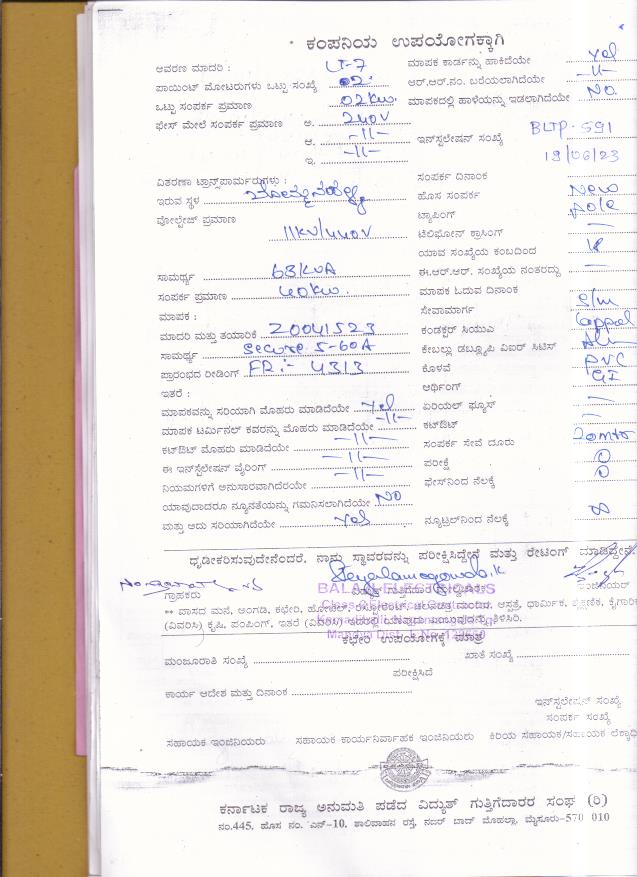 ಕಂಪನಿಯ ಉಪಯೋಗಕ್ಕಾಗಿ
ಆವರಣ ಮಾದರಿ : LT-7 ಮಾಪಕ ಕಾರ್ಡನ್ನು ಹಾಕಿದೆಯೇ Yes
ಪಾಯಿಂಟ್ ಮೋಟರುಗಳು ಒಟ್ಟು ಸಂಖ್ಯೆ 02 ಆರ್.ಆರ್.ನಂ. ಬರೆಯಲಾಗಿದೆಯೇ —11—
ಒಟ್ಟು ಸಂಪರ್ಕ ಪ್ರಮಾಣ 02kw. ಮಾಪಕದಲ್ಲಿ ಹಾಳೆಯನ್ನು ಇಡಲಾಗಿದೆಯೇ No.
ಫೇಸ್ ಮೇಲೆ ಸಂಪರ್ಕ ಪ್ರಮಾಣ ಅ. 240V
ಆ. —11— ಇನ್ಸ್ಟಲೇಷನ್ ಸಂಖ್ಯೆ BLTP-591
ಇ. —11— 19/06/23
ವಿತರಣಾ ಟ್ರಾನ್ಸ್‌ಫಾರ್ಮರುಗಳು : ಸಂಪರ್ಕ ದಿನಾಂಕ
ಇರುವ ಸ್ಥಳ ಹೊಸ ಸಂಪರ್ಕ New
ವೋಲ್ಟೇಜ್ ಪ್ರಮಾಣ ಟ್ಯಾಪಿಂಗ್ Pole
11KV/440V ಟೆಲಿಫೋನ್ ಕ್ರಾಸಿಂಗ್ —
ಯಾವ ಸಂಖ್ಯೆಯ ಕಂಬದಿಂದ
ಸಾಮರ್ಥ್ಯ 63KVA ಈ.ಆರ್.ಆರ್. ಸಂಖ್ಯೆಯ ನಂತರದ್ದು —
ಸಂಪರ್ಕ ಪ್ರಮಾಣ 40kw. ಮಾಪಕ ಓದುವ ದಿನಾಂಕ
ಮಾಪಕ : ಸೇವಾಮಾರ್ಗ S/m
ಮಾದರಿ ಮತ್ತು ತಯಾರಿಕೆ 20041523 ಕಂಡಕ್ಟರ್ ಸಿಯುಎ
ಸಾಮರ್ಥ್ಯ Secure 5-60A ಕೇಬಲ್ಲು ಡಬ್ಲ್ಯೂಪಿ ವಿಐರ್ ಸಿಟಿಸ್ Alu
ಪ್ರಾರಂಭದ ರೀಡಿಂಗ್ FR:- 4313 ಕೊಳವೆ PVC
ಇತರೆ : ಆರ್ಥಿಂಗ್ GI
ಮಾಪಕವನ್ನು ಸರಿಯಾಗಿ ಮೊಹರು ಮಾಡಿದೆಯೇ Yes ಏರಿಯಲ್ ಫ್ಯೂಸ್ —
ಮಾಪಕ ಟರ್ಮಿನಲ್ ಕವರನ್ನು ಮೊಹರು ಮಾಡಿದೆಯೇ —11— ಕಟ್‌ಔಟ್ —
ಕಟ್‌ಔಟ್ ಮೊಹರು ಮಾಡಿದೆಯೇ —11— ಸಂಪರ್ಕ ಸೇವೆ ದೂರು 20mtr
ಈ ಇನ್ಸ್ಟಲೇಷನ್ ವೈರಿಂಗ್ —11— ಪರೀಕ್ಷೆ 0
ನಿಯಮಗಳಿಗೆ ಅನುಸಾರವಾಗಿದೆರಯೇ —11— ಫೇಸ್‌ನಿಂದ ನೆಲಕ್ಕೆ 0
ಯಾವುದಾದರೂ ನ್ಯೂನತೆಯನ್ನು ಗಮನಿಸಲಾಗಿದೆಯೇ NO
ಮತ್ತು ಅದು ಸರಿಯಾಗಿದೆಯೇ Yes ನ್ಯೂಟ್ರಲ್‌ನಿಂದ ನೆಲಕ್ಕೆ ∞
ಧೃಡೀಕರಿಸುವುದೇನೆಂದರೆ, ನಾನು ಸ್ಥಾವರವನ್ನು ಪರೀಕ್ಷಿಸಿದ್ದೇನೆ ಮತ್ತು ರೇಟಿಂಗ್ ಮಾಡಿದ್ದೇನೆ.
ಗ್ರಾಹಕರು
BALAJI ELECTRICALS
** ವಾಸದ ಮನೆ, ಅಂಗಡಿ, ಕಛೇರಿ, ಹೋಟೆಲ್, ಆಸ್ಪತ್ರೆ, ಧಾರ್ಮಿಕ,
(ವಿವರಿಸಿ) ಕೃಷಿ, ಪಂಪಿಂಗ್, ಇತರೆ (ವಿವರಿಸಿ) ತಿಳಿಸಿರಿ.
ಕಛೇರಿ ಉಪಯೋಗಕ್ಕೆ ಮಾತ್ರ
ಮಂಜೂರಾತಿ ಸಂಖ್ಯೆ ಖಾತೆ ಸಂಖ್ಯೆ
ಪರೀಕ್ಷಿಸಿದೆ
ಕಾರ್ಯ ಆದೇಶ ಮತ್ತು ದಿನಾಂಕ
ಇನ್ಸ್ಟಲೇಷನ್ ಸಂಖ್ಯೆ
ಸಂಪರ್ಕ ಸಂಖ್ಯೆ
ಸಹಾಯಕ ಇಂಜಿನಿಯರು ಸಹಾಯಕ ಕಾರ್ಯನಿರ್ವಾಹಕ ಇಂಜಿನಿಯರು ಕಿರಿಯ ಸಹಾಯಕ/ಸಹಾಯಕ
ಕರ್ನಾಟಕ ರಾಜ್ಯ ಅನುಮತಿ ಪಡೆದ ವಿದ್ಯುತ್ ಗುತ್ತಿಗೆದಾರರ ಸಂಘ (ರಿ)
ನಂ.445, ಹೊಸ ನಂ. ಎನ್-10, ಶಾಲಿವಾಹನ ರಸ್ತೆ, ನಜರ್ ಬಾದ್ ಮೊಹಲ್ಲಾ, ಮೈಸೂರು-570 010